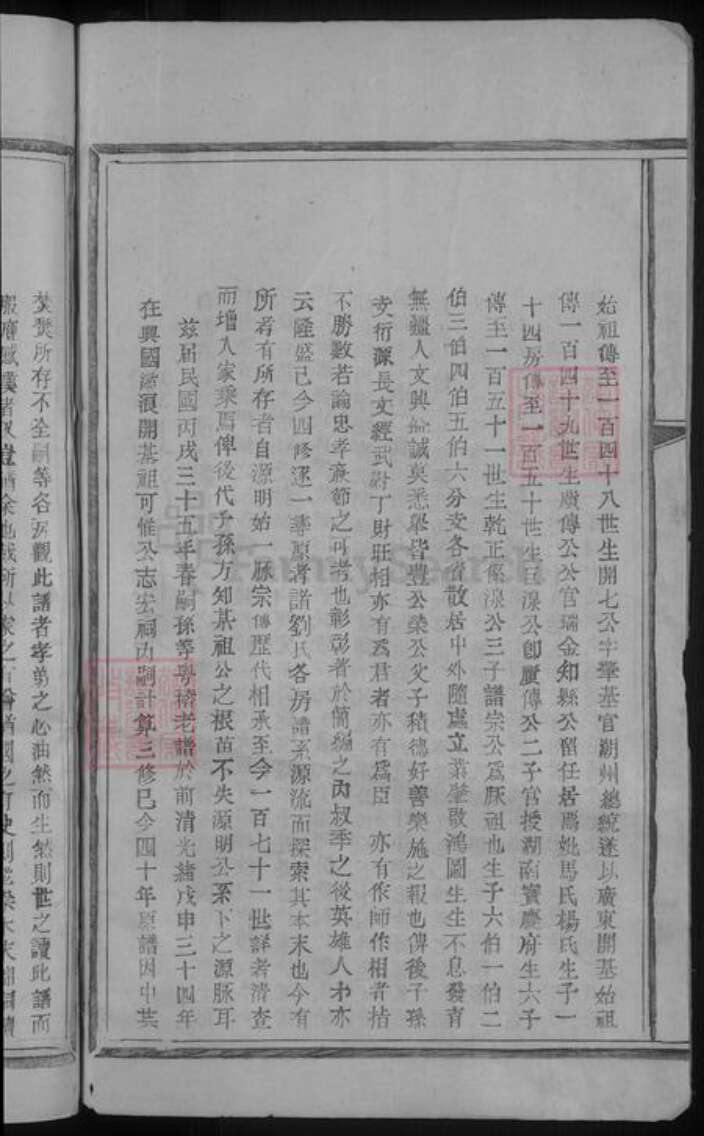 始祖傳至一百四十八世生開七公字肇基官潮州總統遂以廣東開基始祖
傳一百四十九世生廣傳公公官瑞金知縣公留任居焉妣馬氏楊氏生子一
十四房傳至一百五十世生巨淥公卽廣傳公二子官授湖南寶慶府生六子
傳至一百五十一世生乾正係淥公三子譜宗公爲脉祖也生子六伯一伯二
伯三伯四伯五伯六分支各省散居中外隨處立業肇啟鴻圖生生不息發育
無疆人文興誠莫悉舉皆豐公榮公父子積德好善樂施之報也俾後子孫
支衍源長文經武尉丁財旺相亦有爲君者亦有爲臣 亦有作師作相者拮
不勝數若論忠孝廉節之可考也彰彰者於簡編之內叔季之後英雄人才亦
云隆盛已今四修逐一專原考諸劉氏各房譜系源流而探索其本末也今有
所考有所存者自源明始一脉宗傳歷代相承至今一百七十一世詳考清查
而增入家乘焉俾後代子孫方知某祖公之根苗不失源明公系下之源脉耳
茲屆民國丙戌三十五年春嗣孫等舉稽老譜於前清光緒戊申三十四年
在興國瀲浪開基祖可惟公志宏祠內嗣計算三修已今四十年原譜因中共
焚燬所存不全嗣等各房觀此譜者孝弟之心油然而生然則世之讀此譜而